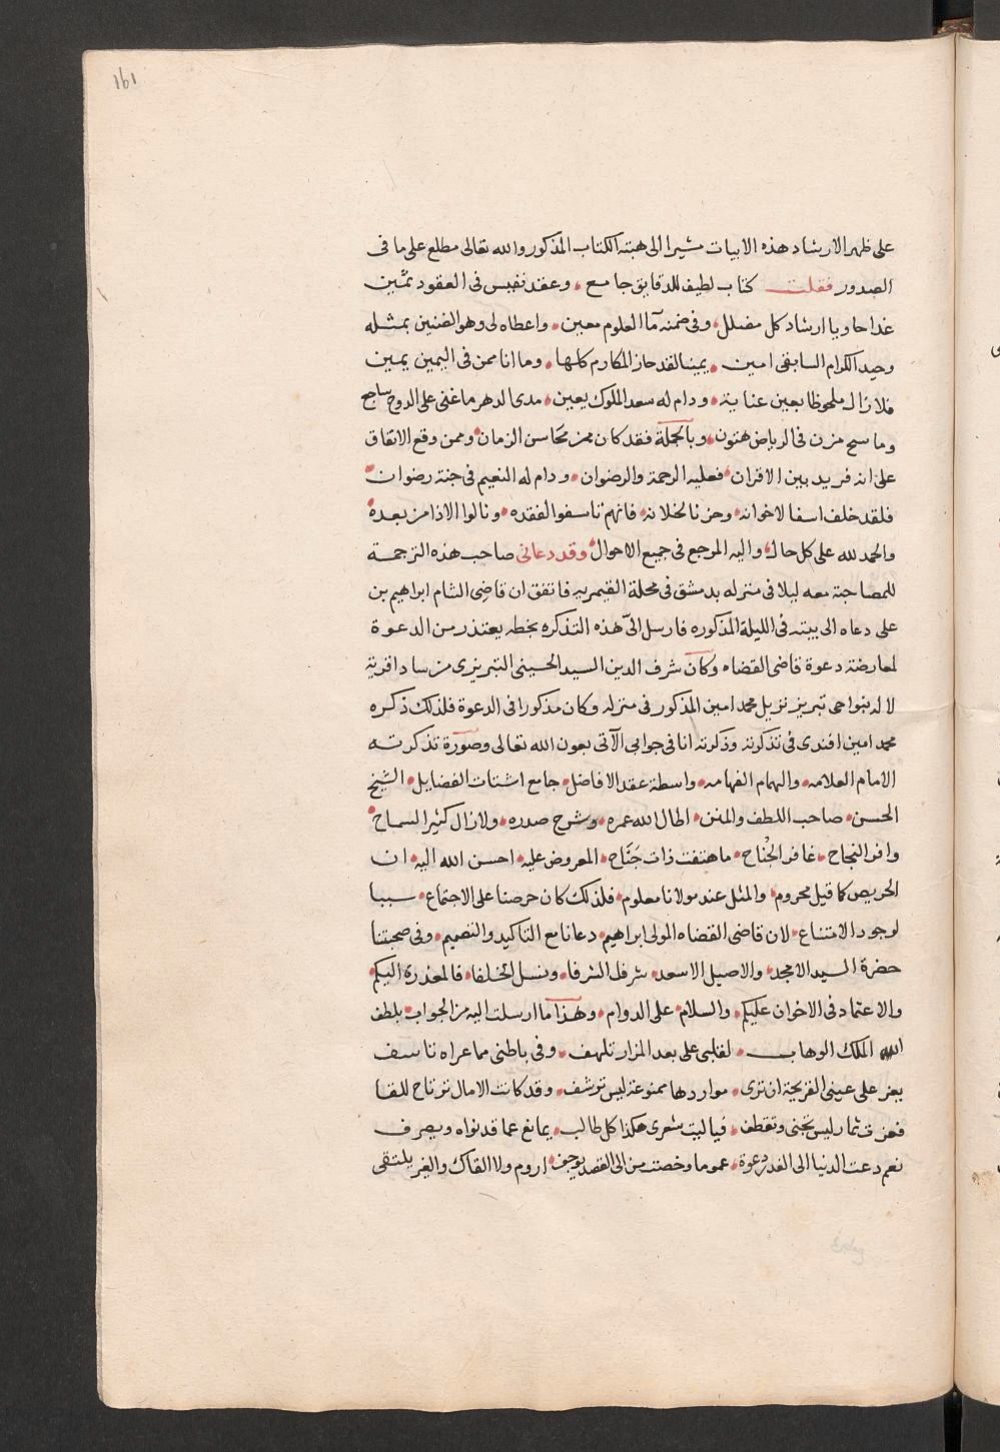 161
على ظهر الارشاد هذه الابيات مشيرا الى هبته الكتاب المذكور والله تعالى مطلع على ما فى
الصدور فقلت كتاب لطيف للدقايق جامع وعقد نفيس فى العقود ثمين
غدا حاويا ارشاد كل مضلل وفى ضمنه مآ العلوم معين واعطاه لى وهو الضنين بمثله
وحيد الكرام السابقى امين يمينا لقد حاز المكارم كلها وما انا ممن فى اليمين يمين
فلا زال ملحوظا بعين عناية ودام له سعد الملوك يعين مدى الدهر ما غنى على الدوح ساجع
وما سح مزن فى الرياض هتون وبالجملة فقد كان من محاسن الزمان وممن وقع الاتفاق
على انه فريد بين الاقران فعليه الرحمة والرضوان ودام له النعيم فى جنة رضوان
فلقد خلف اسفا لاخوانه وحزنا لخلانه فانهم تاسفوا لفقده ونالوا الاذا من بعده
والحمد لله على كل حال واليه المرجع فى جميع الاحوال وقد دعانى صاحب هذه الترجمة
للمصاحبة معه ليلا فى منزله بدمشق فى محلة القيمريه فاتفق ان قاضى الشام ابراهيم بن
على دعاه الى بيته فى الليلة المذكوره فارسل الىّ هذه التذكره بخطه يعتذر من الدعوة
لمعارضة دعوة قاضى القضاه وكان شرف الدين السيد الحسينى التبريزى من ساد اقرية
لاله بنواحى تبريز نزيل محمد امين المذكور فى منزله وكان مذكورا فى الدعوة فلذلك ذكره
محمد امين افندى فى تذكرته وذكرته انا فى جوابى الآتى بعون الله تعالى وصورة تذكرته
الامام العلامه والهمام الفهامه واسطة عقد الافاضل جامع اشتات الفضايل الشيخ
الحسن صاحب اللطف والمنن اطال الله عمره وشرح صدره ولا زال كثير السماح
وافر النجاح غافر الجُناح ما هتفت ذات جَنَاح المعروض عليه احسن الله اليه ان
الحريص كما قيل محروم والمثل عند مولانا معلوم فلذلك كان حرصنا على الاجتماع سببا
لوجود الامتناع لان قاضى القضاه المولى ابراهيم دعانا مع التاكيد والتصميم وفى صحبتنا
حضرة السيد الامجد والاصيل الاسعد شرف الشرفا ونسل الخلفا فالمعذرة اليكم
والاعتماد فى الاخوان عليكم والسلام على الدوام وهذا ما ارسلت اليه من الجواب بلطف
الله الملك الوهاب لقلبى على بعد المزار تلهف وفى باطنى مما عراه تاسف
يعز على عينى القريحة ان ترى مواردها ممنوعة ليس ترشف وقد كانت الامال ترتاح للقا
فعزت ثمار ليس تجنى وتقطف فياليت شعرى هكذا كل طالب يمانع عما قد نواه ويصرف
نعم دعت الدنيا الى الغدر دعوة عموما وخصت من الى القصد يوجف اروم ولا القاك والغير يلتقى